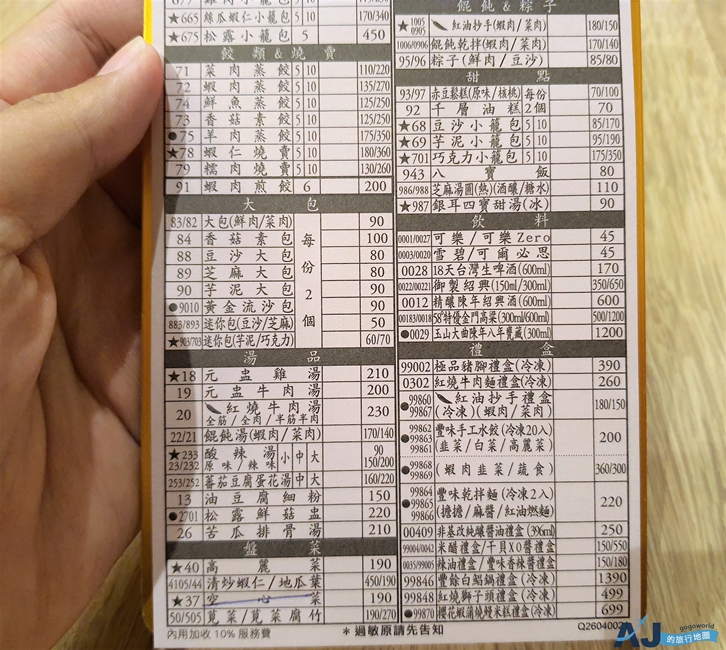 ★665 絲瓜蝦仁小籠包 5 10 170/340
★675 松露小籠包 5 450
餃類&燒賣
71 菜肉蒸餃 5 10 110/220
72 蝦肉蒸餃 5 10 135/270
74 鮮魚蒸餃 5 10 125/250
73 香菇素餃 5 10 125/250
●75 羊肉蒸餃 5 10 175/350
★78 蝦仁燒賣 5 10 180/360
79 糯肉燒賣 5 10 130/260
91 蝦肉煎餃 6 200
大包
每份2個
83/82 大包(鮮肉/菜肉) 90
84 香菇素包 100
88 豆沙大包 80
89 芝麻大包 80
90 芋泥大包 90
●9010 黃金流沙包 90
883/893 迷你包(豆沙/芝麻) 50
★903/703 迷你包(芋泥/巧克力) 60/70
湯品
★18 元盅雞湯 210
19 元盅牛肉湯 200
20 紅燒牛肉湯 230
全筋/全肉/半筋半肉
22/21 餛飩湯(蝦肉/菜肉) 170/140
★233 酸辣湯 小 中 大 90
23/232 原味/辣味 150/200
253/252 蕃茄豆腐蛋花湯 中 大 160/220
13 油豆腐細粉 150
●2701 松露鮮菇盅 220
26 苦瓜排骨湯 210
盤菜
★40 高麗菜 190
4105/44 清炒蝦仁/地瓜葉 450/190
★37 空心菜 190
50/505 莧菜/莧菜腐竹 190/270
內用加收10%服務費
餛飩&粽子
★1005 0905 紅油抄手(蝦肉/菜肉) 180/150
1006/0906 餛飩乾拌(蝦肉/菜肉) 170/140
95/96 粽子(鮮肉/豆沙) 85/80
甜點
93/97 赤豆鬆糕(原味/核桃) 每份 70/100
92 千層油糕 2個 70
★68 豆沙小籠包 5 10 85/170
★69 芋泥小籠包 5 10 95/190
★701 巧克力小籠包 5 10 175/350
943 八寶飯 80
986/988 芝麻湯圓(熱)(酒釀/糖水) 110
★987 銀耳四寶甜湯(冰) 90
飲料
0001/0027 可樂/可樂Zero 45
0003/0020 雪碧/可爾必思 45
0028 18天台灣生啤酒(600ml) 170
0022/00221 御製紹興(150ml/300ml) 350/650
0012 精釀陳年紹興酒(600ml) 600
00183/0018 58°特優金門高粱(300ml/600ml) 500/1200
●0029 玉山大曲陳年八年甕藏(300ml) 1200
禮盒
99002 極品豬腳禮盒(冷凍) 390
0302 紅燒牛肉麵禮盒(冷凍) 260
●99860 紅油抄手禮盒
99867 (冷凍)(蝦肉/菜肉) 180/150
99862 豐味手工水餃(冷凍20入)
●99863
99861 (韭菜/白菜/高麗菜) 200
●99868
99869 (蝦肉韭菜/蔬食) 360/300
99864 豐味乾拌麵(冷凍2入)
●99865
99866 (擔擔/麻醬/紅油燃麵) 220
00409 非基改純釀醬油禮盒(396ml) 250
99004/0042 米醋禮盒/干貝XO醬禮盒 150/550
0035/99005 辣油禮盒/豐味香辣醬禮盒 150/180
99846 豐餘白鯧鍋禮盒(冷凍) 1390
99848 紅燒獅子頭禮盒(冷凍) 499
●99870 櫻花蝦蒲燒鰻米糕禮盒(冷凍) 699
*過敏原請先告知
Q2604002
AJ的旅行地圖
gogoworld